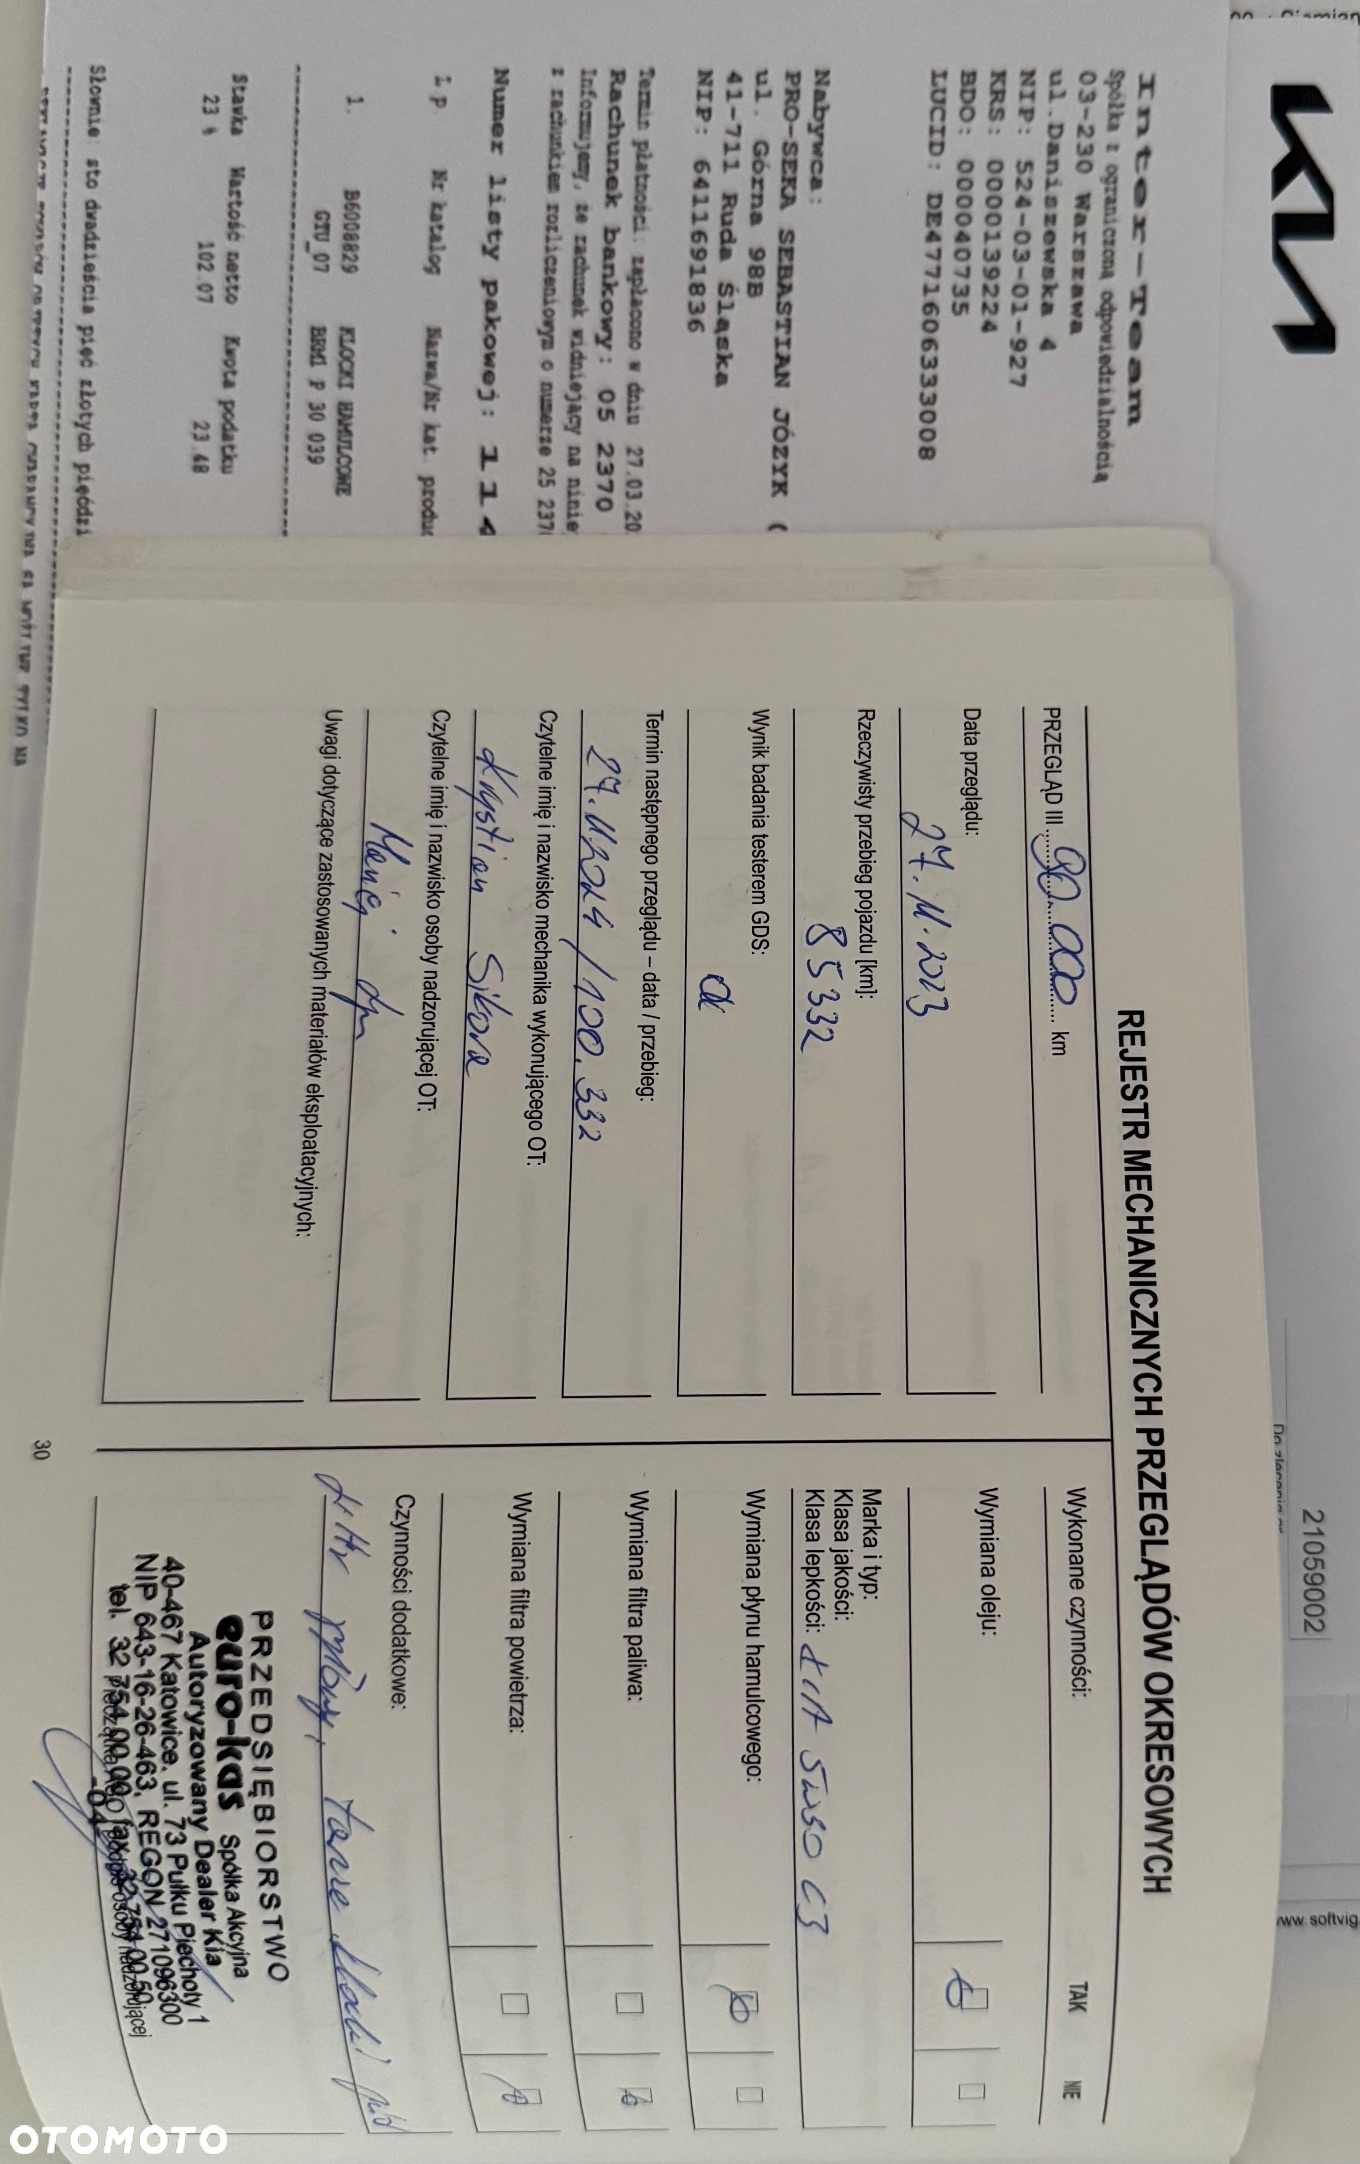 KIA
21059002
Inter-Team
Spółka z ograniczoną odpowiedzialnością
03-230 Warszawa
ul.Daniszewska 4
NIP: 524-03-01-927
KRS: 0000139224
BDO: 000040735
LUCID: DE4771606333008
Nabywca:
PRO-SEKA SEBASTIAN JÓZYK (
ul. Górna 98B
41-711 Ruda Śląska
NIP: 6411691836
Termin płatności: zapłacono w dniu 27.03.20
Rachunek bankowy: 05 2370
Informujemy, że rachunek widniejący na ninie
z rachunkiem rozliczeniowym o numerze 25 237
Numer listy pakowej: 114
Lp Nr katalog Nazwa/Nr kat. produc
1. B6008829 KLOCKI HAMULCOWE
GTU_07 BRM1 P 30 039
Stawka Wartość netto Kwota podatku
23 % 102.07 23.48
Słownie: sto dwadzieścia pięć złotych pięćdzi
REJESTR MECHANICZNYCH PRZEGLĄDÓW OKRESOWYCH
PRZEGLĄD III 90.000 km
Data przeglądu:
27.11.2023
Rzeczywisty przebieg pojazdu [km]:
85332
Wynik badania testerem GDS:
ok
Termin następnego przeglądu – data / przebieg:
27.11.2024 / 100.332
Czytelne imię i nazwisko mechanika wykonującego OT:
Krystian Sikora
Czytelne imię i nazwisko osoby nadzorującej OT:
Uwagi dotyczące zastosowanych materiałów eksploatacyjnych:
Wykonane czynności: TAK NIE
Wymiana oleju:
Marka i typ:
Klasa jakości:
Klasa lepkości: KIA 5W30 C3
Wymiana płynu hamulcowego:
Wymiana filtra paliwa:
Wymiana filtra powietrza:
Czynności dodatkowe:
filtr pyłowy, tarcze klocki przód
PRZEDSIĘBIORSTWO
euro-kas Spółka Akcyjna
Autoryzowany Dealer Kia
40-467 Katowice, ul. 73 Pułku Piechoty 1
NIP 643-16-26-463, REGON 271096300
tel. 32 754 00 00, fax 32 754 00 50
-04-
30
www.softvig
OTOMOTO